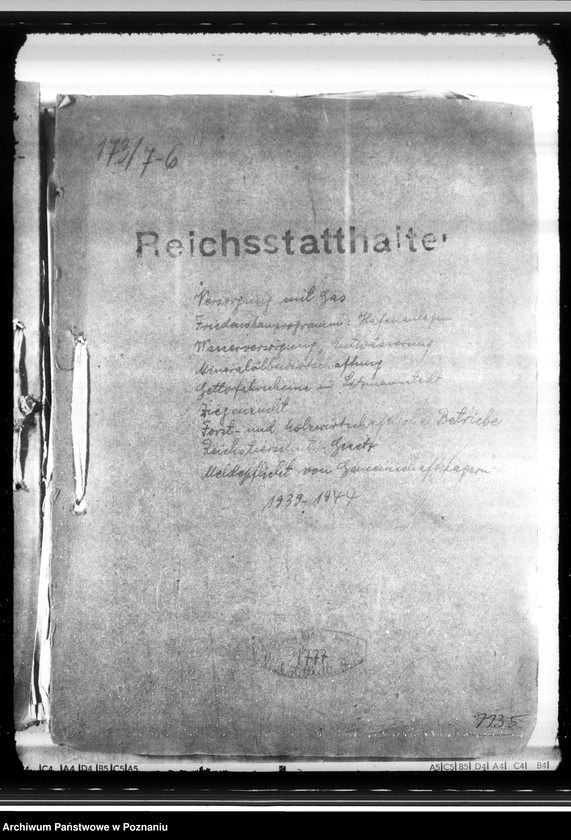 173/7-6
Reichsstatthalter
Versorgung mit Gas
Friedensbauprogramm: Hafenanlagen
Wasserversorgung, Entwässerung
Mineralölbewirtschaftung
Gettofahrscheine in Litzmannstadt
Ziegenzucht
Forst- und holzwirtschaftliche Betriebe
Reichstierschutz Gesetz
Meldepflicht von Gemeinschaftslagern
1939-1944
1777
1135
C4 A4 D4 B5 C5 A5
A5 C5 B5 D4 A4 C4 B4
Archiwum Państwowe w Poznaniu